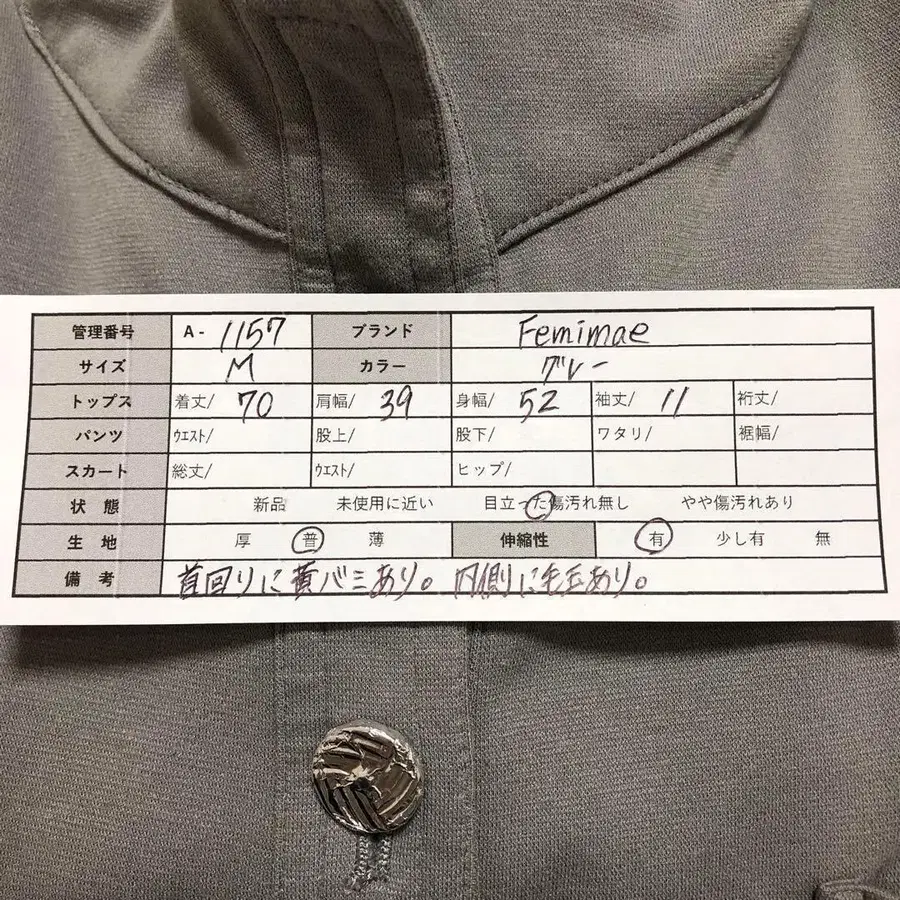 管理番号 A- 1157 ブランド Femimae
サイズ M カラー グレー
トップス 着丈/ 70 肩幅/ 39 身幅/ 52 袖丈/ 11 裄丈/
パンツ ウエスト/ 股上/ 股下/ ワタリ/ 裾幅/
スカート 総丈/ ウエスト/ ヒップ/
状態 新品 未使用に近い 目立った傷汚れ無し やや傷汚れあり
生地 厚 普 薄 伸縮性 有 少し有 無
備考 首回りに黄バミあり。内側に毛玉あり。